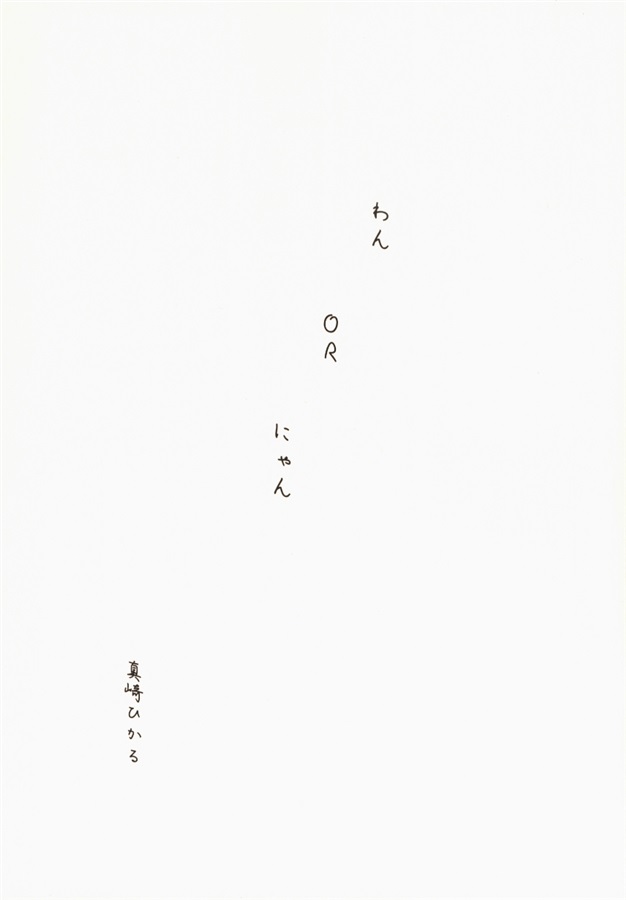 わん
OR
にゃん
真崎ひかる